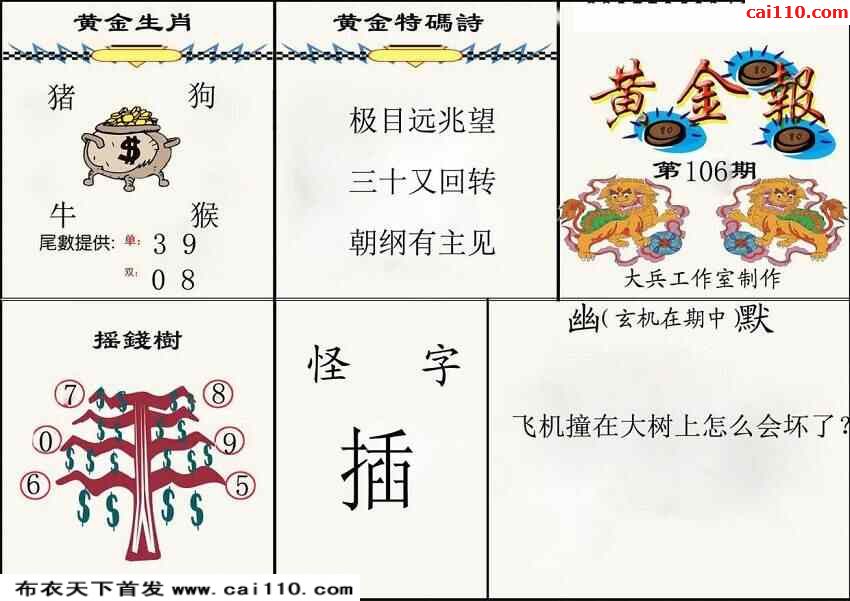 cai110.com
黄金生肖
猪 狗
$
牛 猴
尾數提供: 单: 3 9
双: 0 8
黄金特碼詩
极目远兆望
三十又回转
朝纲有主见
黄金報
第106期
大兵工作室制作
摇錢樹
7 8
0 9
6 5
怪 字
插
幽(玄机在期中)默
飞机撞在大树上怎么会坏了?
布衣天下首发 www.cai110.com